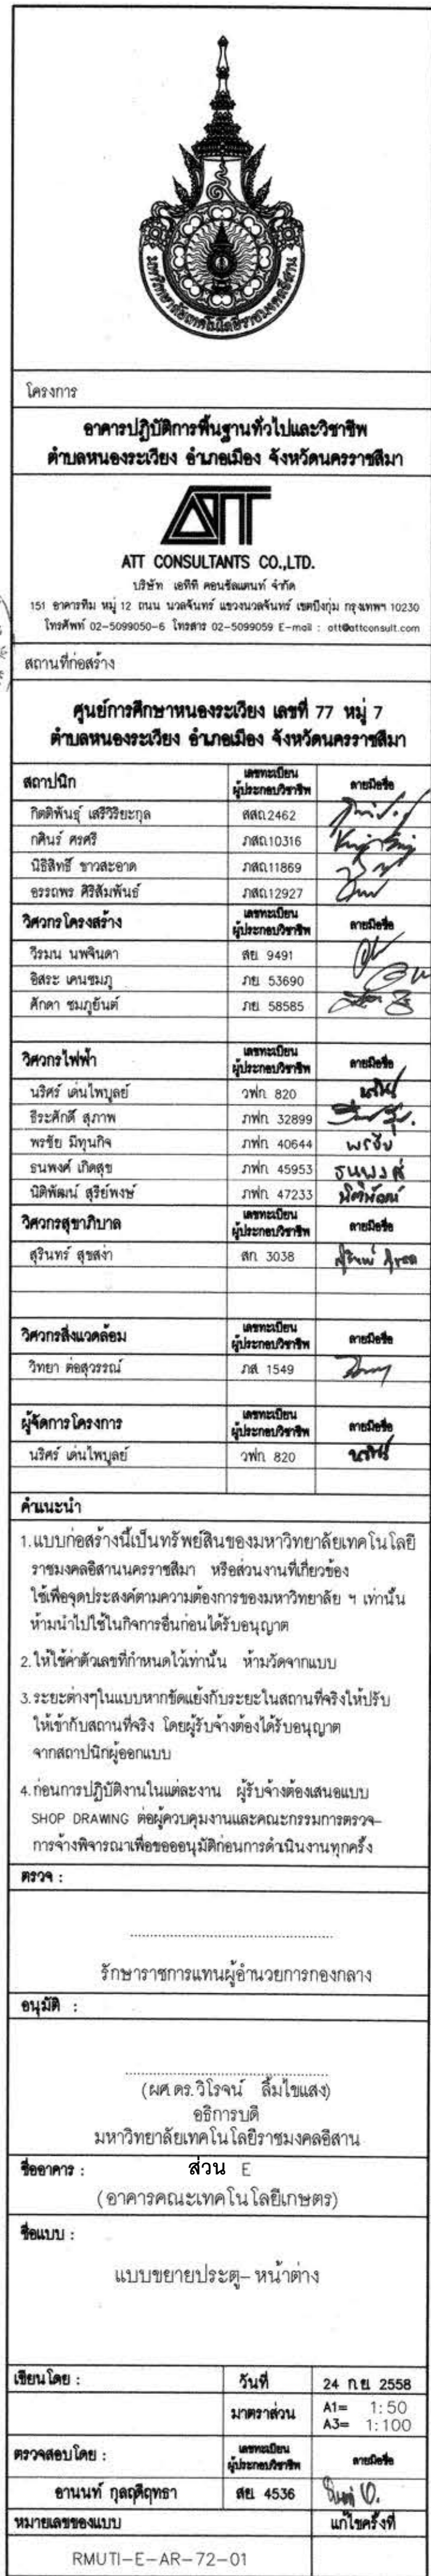 มหาวิทยาลัยเทคโนโลยีราชมงคลอีสาน
โครงการ
อาคารปฏิบัติการพื้นฐานทั่วไปและวิชาชีพ
ตำบลหนองระเวียง อำเภอเมือง จังหวัดนครราชสีมา
ATT
ATT CONSULTANTS CO.,LTD.
บริษัท เอทีที คอนซัลแตนท์ จำกัด
151 อาคารทีม หมู่ 12 ถนน นวลจันทร์ แขวงนวลจันทร์ เขตบึงกุ่ม กรุงเทพฯ 10230
โทรศัพท์ 02-5099050-6 โทรสาร 02-5099059 E-mail : att@attconsult.com
สถานที่ก่อสร้าง
ศูนย์การศึกษาหนองระเวียง เลขที่ 77 หมู่ 7
ตำบลหนองระเวียง อำเภอเมือง จังหวัดนครราชสีมา
สถาปนิก เลขทะเบียน ผู้ประกอบวิชาชีพ ลายมือชื่อ
กิตติพันธุ์ เสรีวิริยะกุล สสถ.2462
กศินร์ ศรศรี ภสถ.10316
นิธิสิทธิ์ ขาวสะอาด ภสถ.11869
อรรถพร ศิริสัมพันธ์ ภสถ.12927
วิศวกรโครงสร้าง เลขทะเบียน ผู้ประกอบวิชาชีพ ลายมือชื่อ
วีรมน นพจินดา สย. 9491
อิสระ เคนชมภู ภย. 53690
ศักดา ชมภูยันต์ ภย. 58585
วิศวกรไฟฟ้า เลขทะเบียน ผู้ประกอบวิชาชีพ ลายมือชื่อ
นริศร์ เด่นไพบูลย์ วฟก. 820
ธีระศักดิ์ สุภาพ ภฟก. 32899
พรชัย มีทุนกิจ ภฟก. 40644 พรชัย
ธนพงศ์ เกิดสุข ภฟก. 45953 ธนพงศ์
นิติพัฒน์ สุรีย์พงษ์ ภฟก. 47233 นิติพัฒน์
วิศวกรสุขาภิบาล เลขทะเบียน ผู้ประกอบวิชาชีพ ลายมือชื่อ
สุรินทร์ สุขสง่า สก. 3038
วิศวกรสิ่งแวดล้อม เลขทะเบียน ผู้ประกอบวิชาชีพ ลายมือชื่อ
วิทยา ต่อสุวรรณ์ ภส. 1549
ผู้จัดการโครงการ เลขทะเบียน ผู้ประกอบวิชาชีพ ลายมือชื่อ
นริศร์ เด่นไพบูลย์ วฟก. 820
คำแนะนำ
1. แบบก่อสร้างนี้เป็นทรัพย์สินของมหาวิทยาลัยเทคโนโลยี
ราชมงคลอีสานนครราชสีมา หรือส่วนงานที่เกี่ยวข้อง
ใช้เพื่อจุดประสงค์ตามความต้องการของมหาวิทยาลัย ฯ เท่านั้น
ห้ามนำไปใช้ในกิจการอื่นก่อนได้รับอนุญาต
2. ให้ใช้ค่าตัวเลขที่กำหนดไว้เท่านั้น ห้ามวัดจากแบบ
3. ระยะต่างๆในแบบหากขัดแย้งกับระยะในสถานที่จริงให้ปรับ
ให้เข้ากับสถานที่จริง โดยผู้รับจ้างต้องได้รับอนุญาต
จากสถาปนิกผู้ออกแบบ
4. ก่อนการปฏิบัติงานในแต่ละงาน ผู้รับจ้างต้องเสนอแบบ
SHOP DRAWING ต่อผู้ควบคุมงานและคณะกรรมการตรวจ-
การจ้างพิจารณาเพื่อขออนุมัติก่อนการดำเนินงานทุกครั้ง
ตรวจ :
รักษาราชการแทนผู้อำนวยการกองกลาง
อนุมัติ :
(ผศ.ดร.วิโรจน์ ลิ้มไขแสง)
อธิการบดี
มหาวิทยาลัยเทคโนโลยีราชมงคลอีสาน
ชื่ออาคาร : ส่วน E
(อาคารคณะเทคโนโลยีเกษตร)
ชื่อแบบ :
แบบขยายประตู-หน้าต่าง
เขียนโดย : วันที่ 24 ก.ย. 2558
มาตราส่วน A1= 1:50
A3= 1:100
ตรวจสอบโดย : เลขทะเบียน ผู้ประกอบวิชาชีพ ลายมือชื่อ
อานนท์ กุลฤดีฤทธา สย. 4536
หมายเลขของแบบ แก้ไขครั้งที่
RMUTI-E-AR-72-01